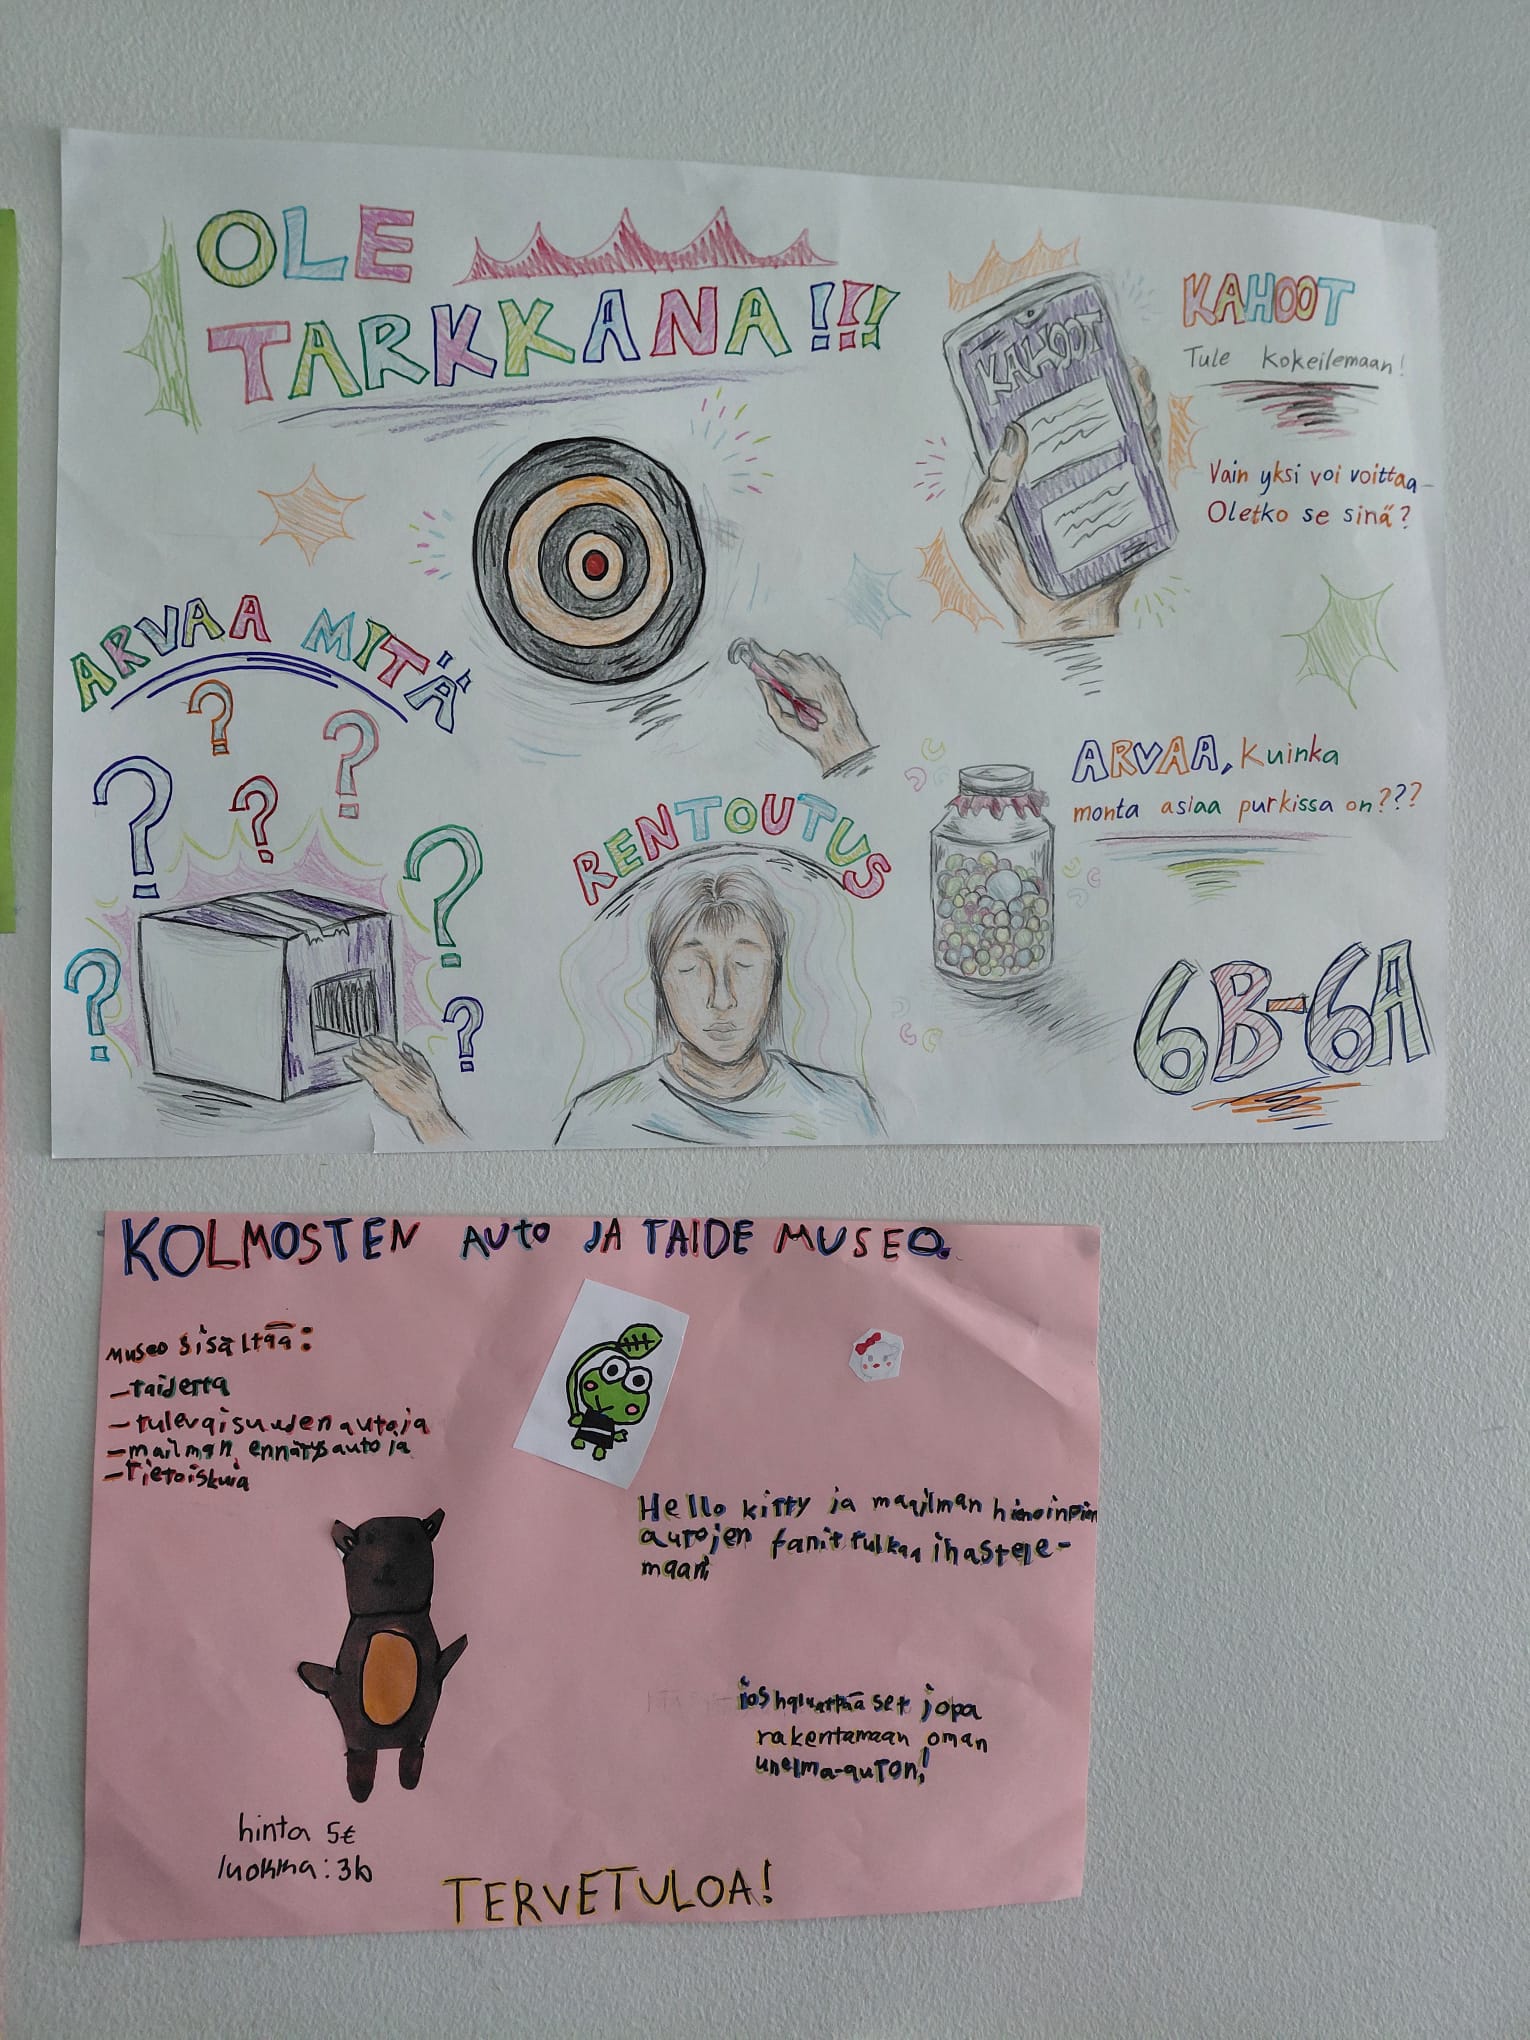 OLE
TARKKANA!!!
KAHOOT
Tule kokeilemaan!
KAHOOT
Vain yksi voi voittaa-
Oletko se sinä?
ARVAA MITÄ
? ? ? ? ? ? ?
RENTOUTUS
ARVAA, kuinka
monta asiaa purkissa on???
6B-6A
KOLMOSTEN AUTO JA TAIDE MUSEO.
MUSEO sisältää:
-taidetta
-tulevaisuuden autoja
-mailman ennätysautoja
-Tietoiskuja
Hello kitty ja maailman
autojen fanit tulkaa ihastele-
maan!
jos haluatta set jopa
rakentamaan oman
unelma-auton!
hinta 5€
luokka: 3b
TERVETULOA!